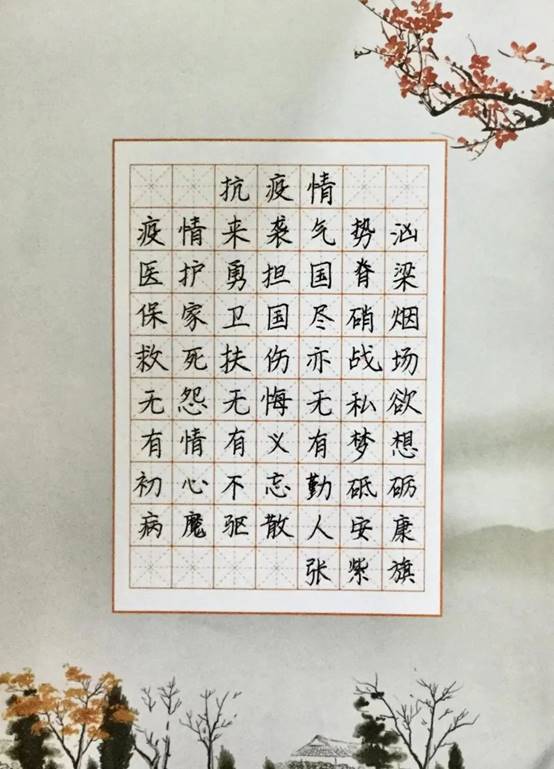 抗疫情
疫情来袭气势汹
医护勇担国脊梁
保家卫国尽硝烟
救死扶伤亦战场
无怨无悔无私欲
有情有义有梦想
初心不忘勤砥砺
病魔驱散人安康
张紫旗